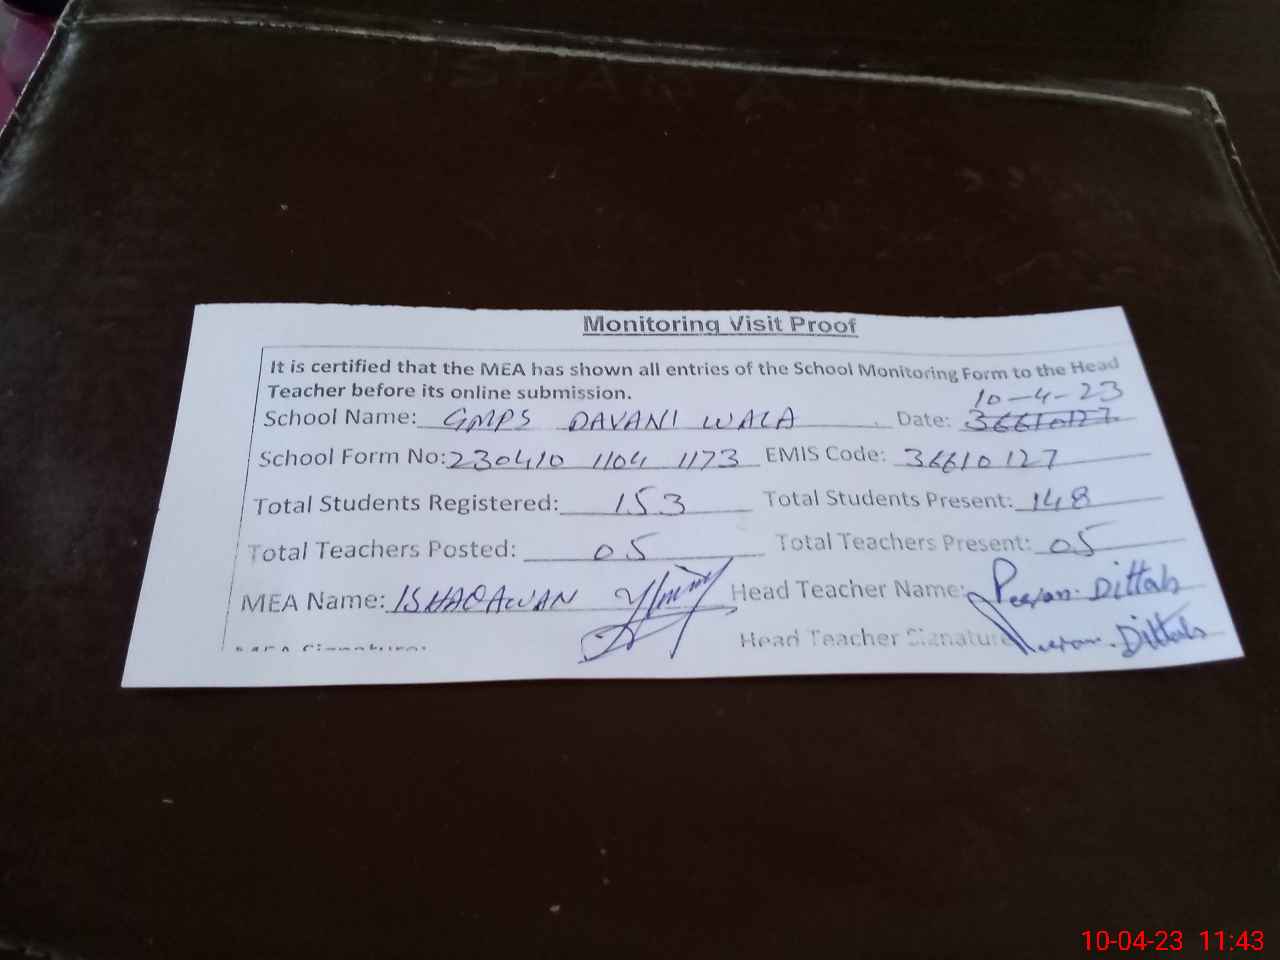 Monitoring Visit Proof
It is certified that the MEA has shown all entries of the School Monitoring Form to the Head
Teacher before its online submission.
10-4-23
School Name: GMPS DAVANI WALA Date: 36610127
School Form No: 230410 1104 1173 EMIS Code: 36610127
Total Students Registered: 153 Total Students Present: 148
Total Teachers Posted: 05 Total Teachers Present: 05
MEA Name: ISHAQ AWAN Head Teacher Name: Peeran. Dittah
Head Teacher Signature Peeran. Dittah
10-04-23 11:43